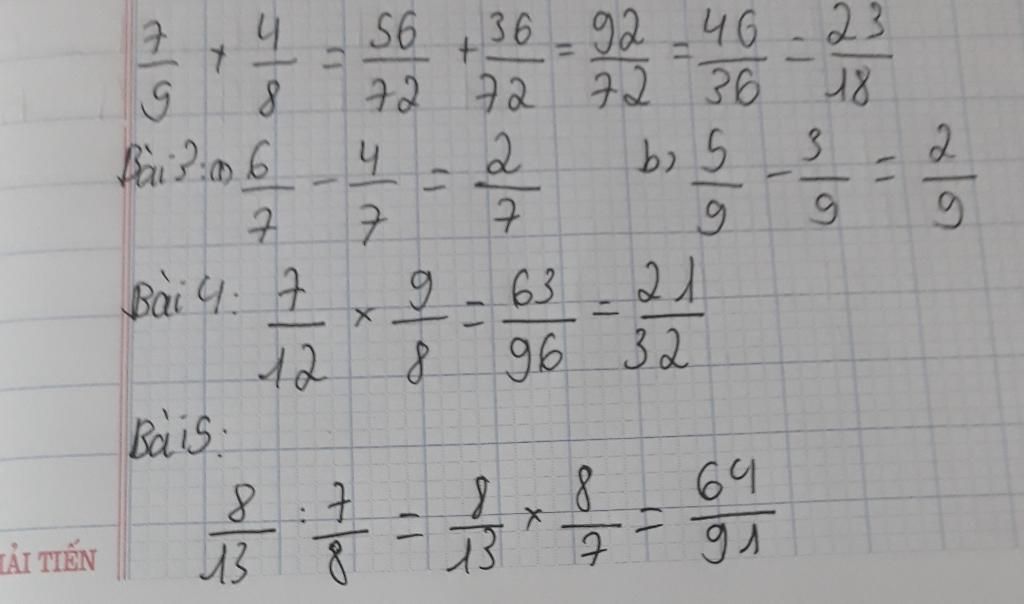 7/9 + 4/8 = 56/72 + 36/72 = 92/72 = 46/36 = 23/18
Bài 3: a) 6/7 - 4/7 = 2/7 b) 5/9 - 3/9 = 2/9
Bài 4: 7/12 × 9/8 = 63/96 = 21/32
Bài 5:
8/13 : 7/8 = 8/13 × 8/7 = 64/91
ẢI TIẾN